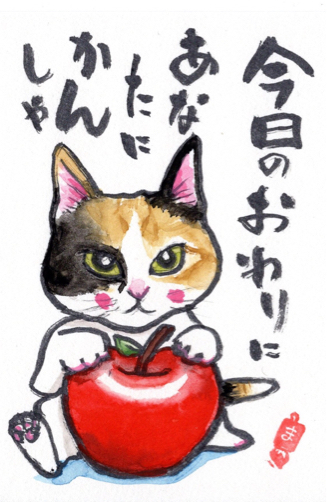 今日のおわりに
あなたに
かんしゃ